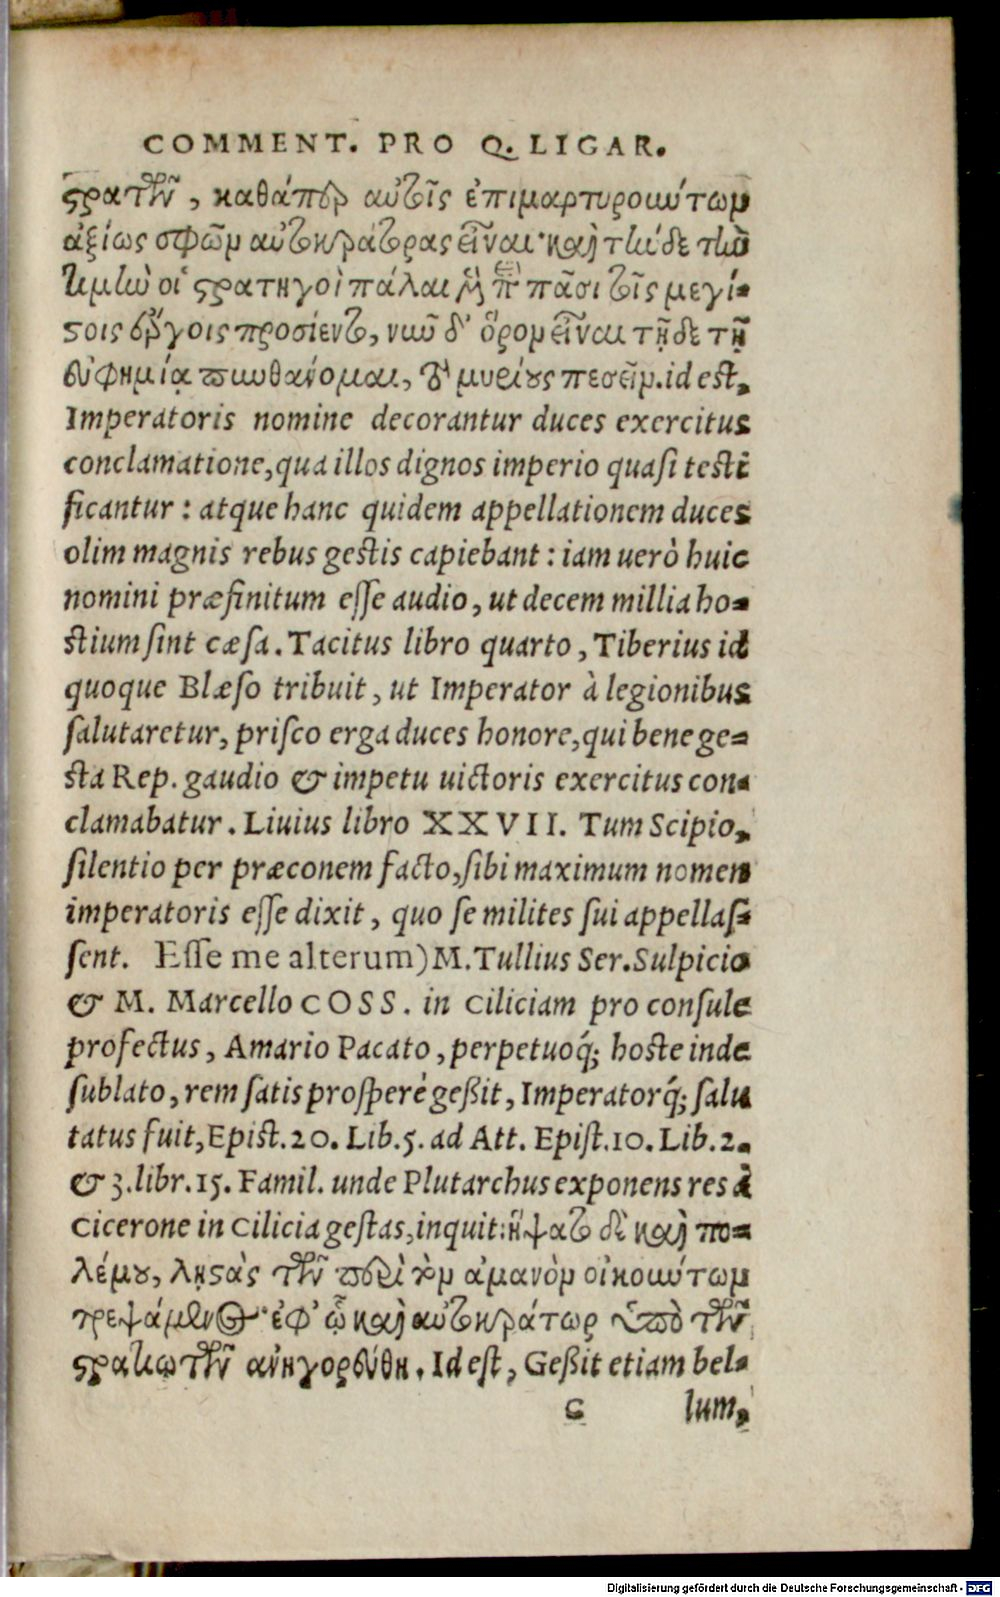 COMMENT. PRO Q. LIGAR.
στρατῶν, καθάπερ αὐτοῖς ἐπιμαρτυρούντων
ἀξίως σφῶν αὐτοκράτορας εἶναι· καὶ τήνδε τὴν
τιμὴν οἱ στρατηγοὶ πάλαι μὲν ἐπὶ πᾶσι τοῖς μεγί-
στοις ἔργοις προσίεντο, νῦν δ' ὅρον εἶναι τῇδε τῇ
εὐφημίᾳ πυνθάνομαι, τὸ μυρίους πεσεῖν. id est,
Imperatoris nomine decorantur duces exercitus
conclamatione, qua illos dignos imperio quasi testi
ficantur: atque hanc quidem appellationem duces
olim magnis rebus gestis capiebant: iam uerò huic
nomini præfinitum esse audio, ut decem millia ho-
stium sint cæsa. Tacitus libro quarto, Tiberius id
quoque Blæso tribuit, ut Imperator à legionibus
salutaretur, prisco erga duces honore, qui bene ge-
sta Rep. gaudio & impetu uictoris exercitus con-
clamabatur. Liuius libro XXVII. Tum Scipio,
silentio per præconem facto, sibi maximum nomen
imperatoris esse dixit, quo se milites sui appellas-
sent. Esse me alterum) M. Tullius Ser. Sulpicio
& M. Marcello COSS. in Ciliciam pro consule
profectus, Amario Pacato, perpetuoq́; hoste inde
sublato, rem satis prosperè geßit, Imperatorq́; salu
tatus fuit, Epist. 20. Lib. 5. ad Att. Epist. 10. Lib. 2.
& 3. libr. 15. Famil. unde Plutarchus exponens res à
Cicerone in Cilicia gestas, inquit: ἥψατο δὲ καὶ πο-
λέμου, λῃστὰς τῶν περὶ τὸν ἀμανὸν οἰκούντων
τρεψάμενος· ἐφ' ᾧ καὶ αὐτοκράτωρ ὑπὸ τῶν
στρατιωτῶν ἀνηγορεύθη. Id est, Geßit etiam bel-
C lum,
Digitalisierung gefördert durch die Deutsche Forschungsgemeinschaft - DFG